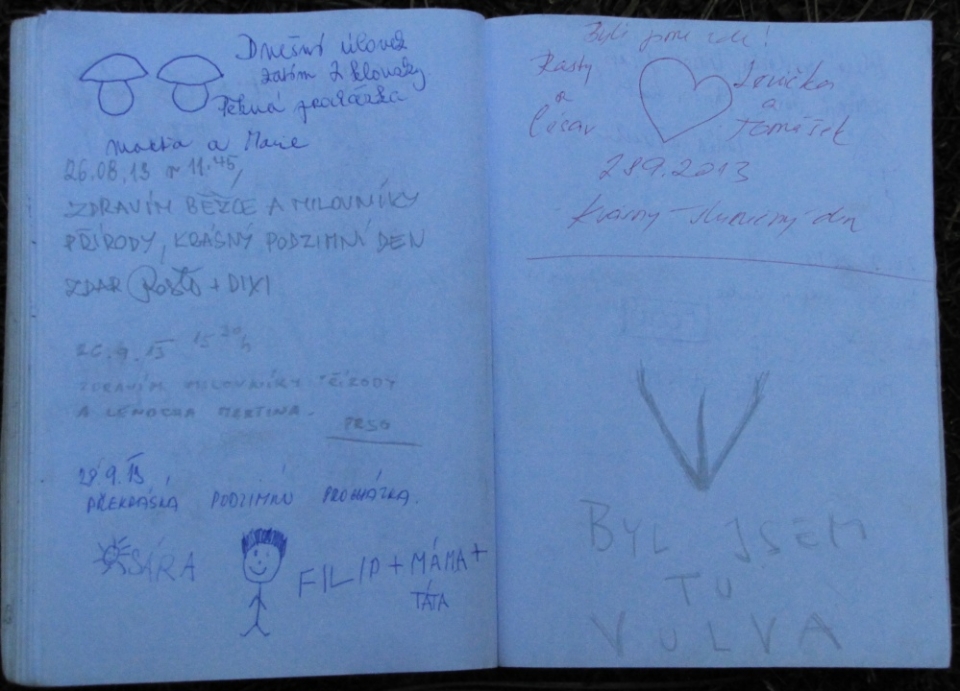 Dnešní úlovek
zatím 2 klouzky
Pěkná procházka
a Marie
26.08.13 v 11.45,
ZDRAVÍM BĚŽCE A MILOVNÍKY
PŘÍRODY, KRÁSNÝ PODZIMNÍ DEN
ZDAR + DIXI
26.9.13 15 30 h
ZDRAVÍM MILOVNÍKY PŘÍRODY
A LENOCHA MERTINA.
28.9.13
PŘEKRÁSNÁ PODZIMNÍ PROCHÁZKA.
SÁRA FILIP + MÁMA +
TÁTA
Byli jsme zde!
Rasty
a
Janička
a
Tomášek
28.9.2013
Krásný slunečný den
BYL JSEM
TU
VULVA